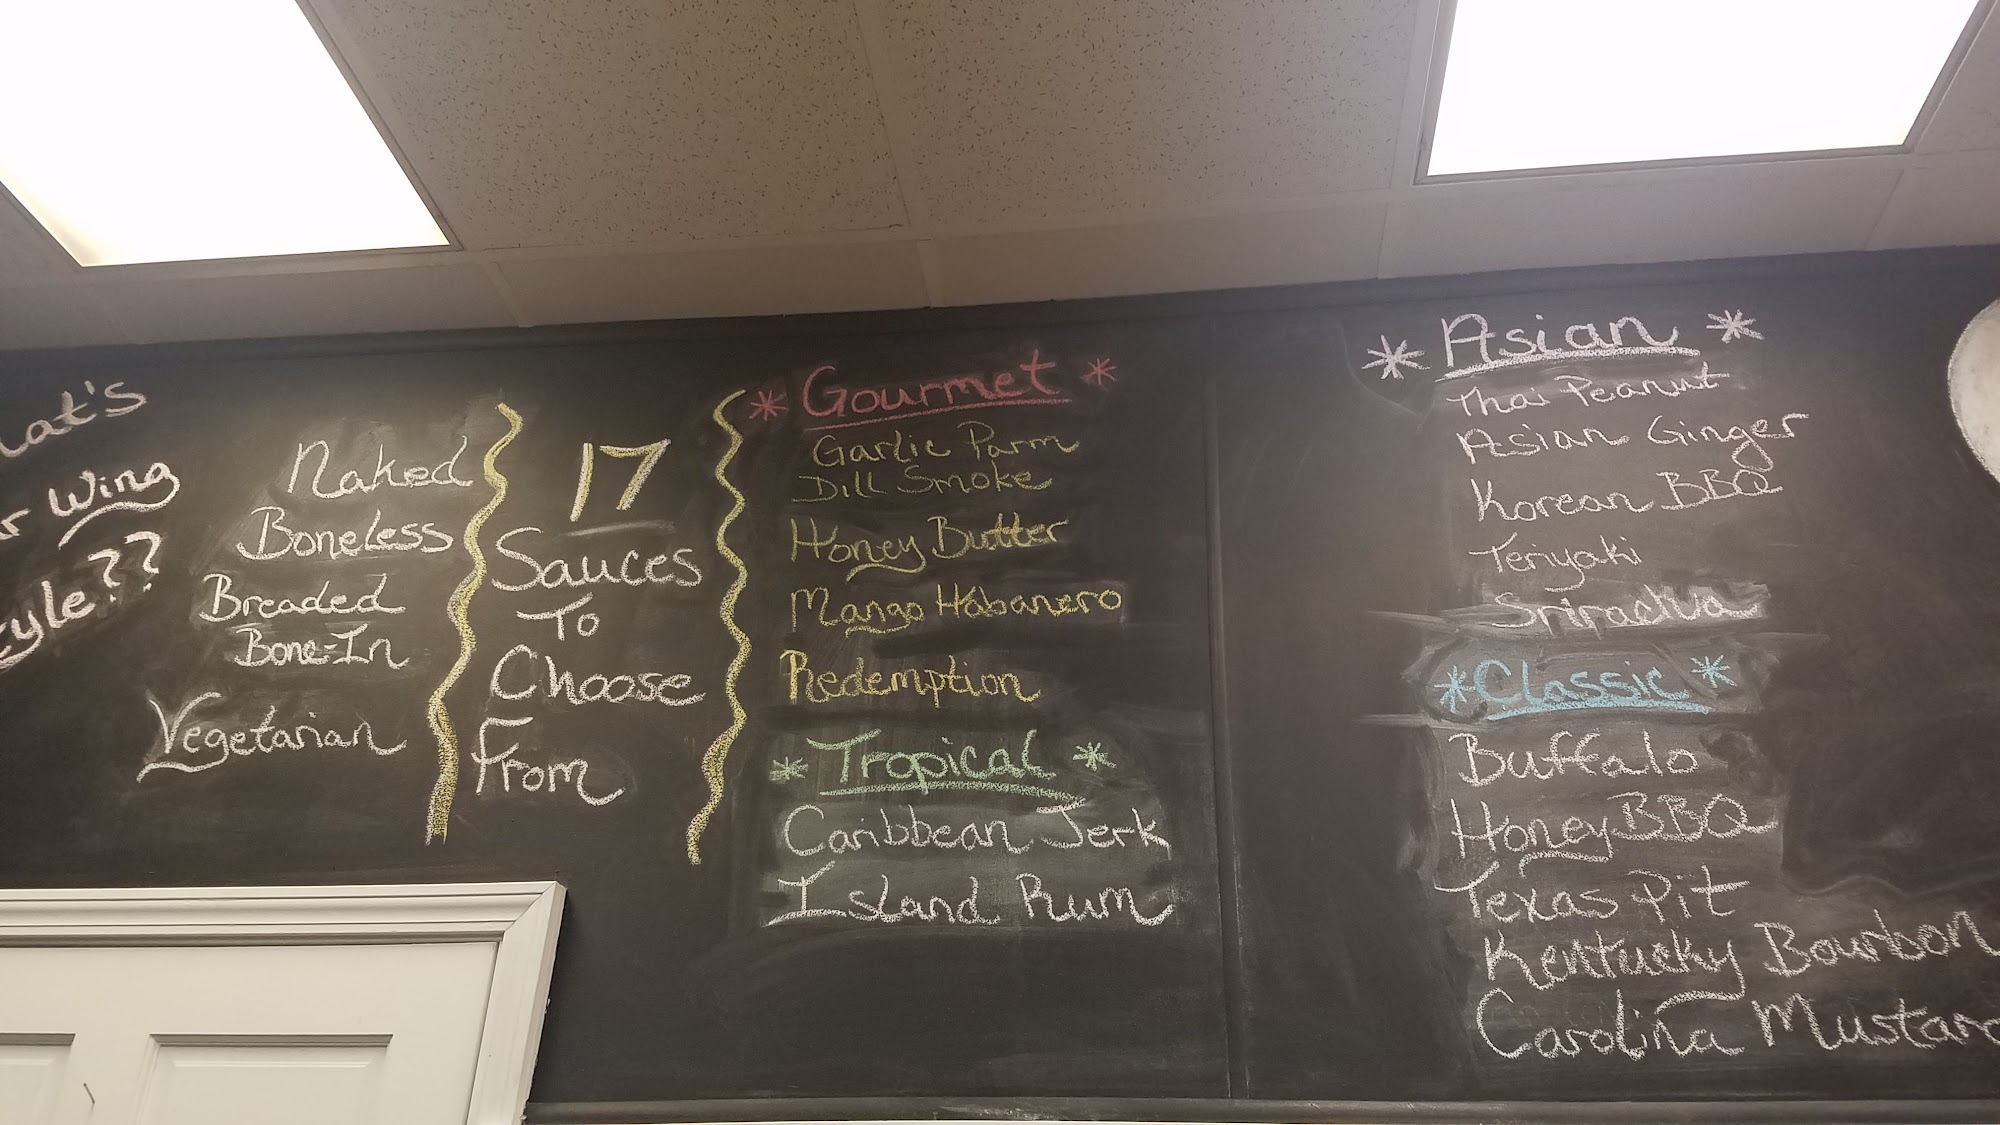 Wing
Naked
Boneless
Breaded
Bone-In
Vegetarian
17
Sauces
To
Choose
From
* Gourmet *
Garlic Parm
Dill Smoke
Honey Butter
Mango Habanero
Redemption
* Tropical *
Caribbean Jerk
Island Rum
* Asian *
Thai Peanut
Asian Ginger
Korean BBQ
Teriyaki
Sriracha
* Classic *
Buffalo
Honey BBQ
Texas Pit
Kentucky Bourbon
Carolina Mustard